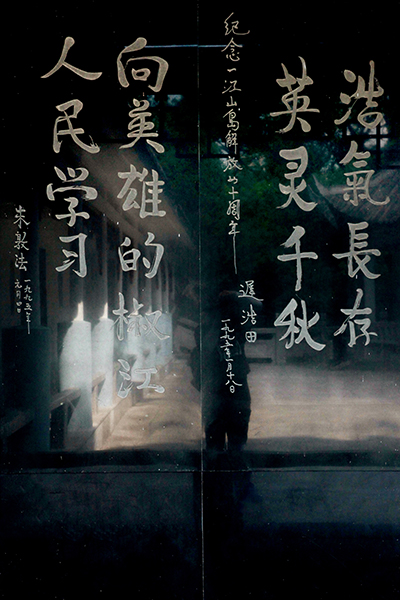 浩氣長存
英灵千秋
纪念一江山岛解放四十周年
遲浩田
一九九五年一月十八日
向英雄的椒江
人民学习
朱敦法
一九九五年
元月